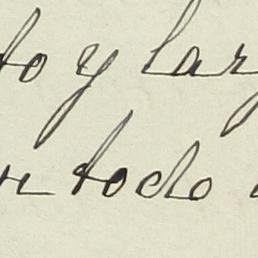 to y lar
n todo